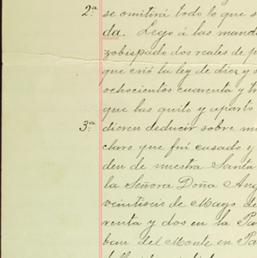 2.ª se omitirá todo lo que s
da. Lego á las mand
zobispado dos reales de p
que crió la ley de diez y s
ochocientos cuarenta y t
que las quito y aparto
3.ª dieren deducir sobre m
claro que fuí casado y
den de nuestra Santa
la Señora Doña Ang
veintiseis de Mayo de
renta y dos en la Pa
ban del Monte en Pa